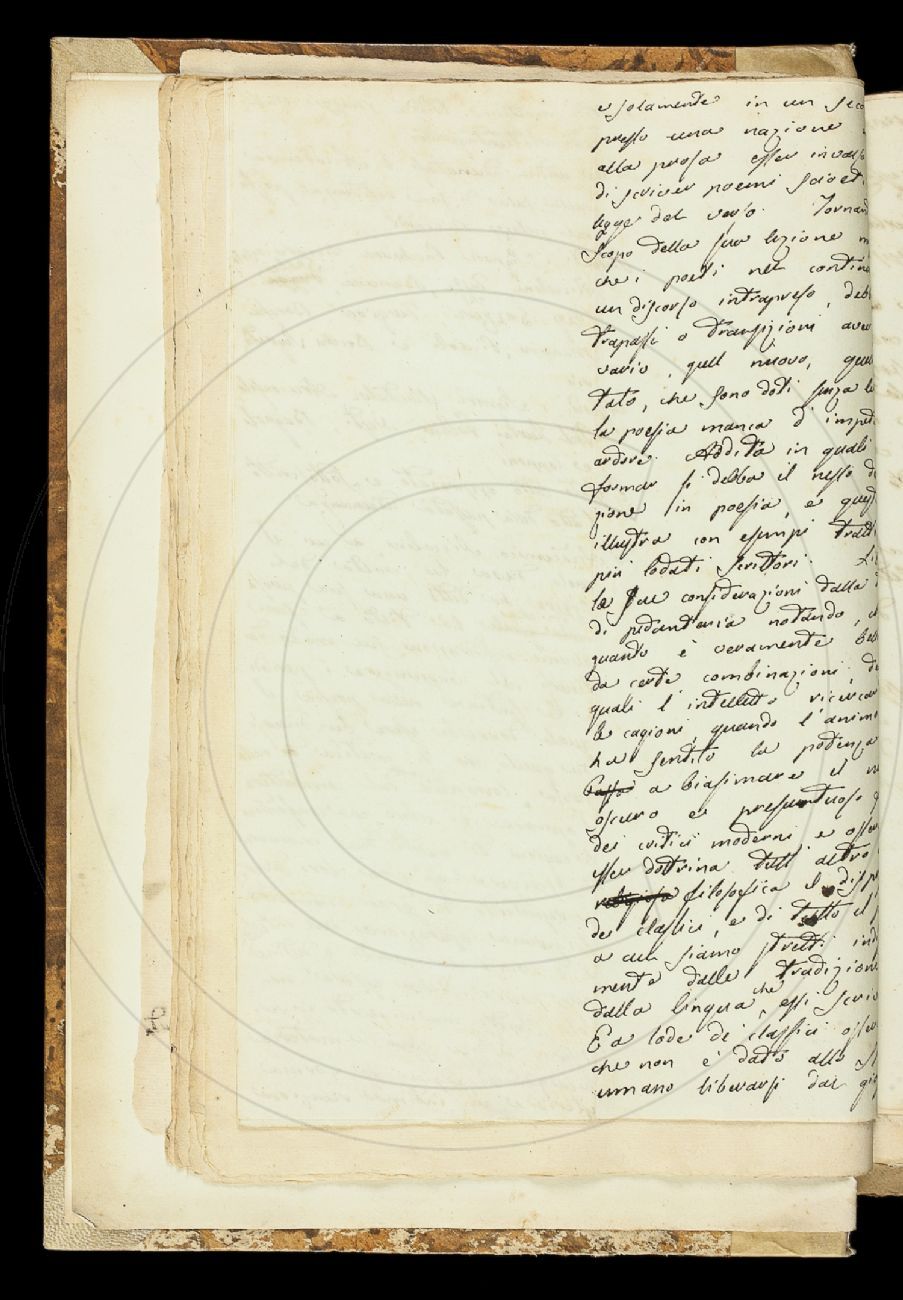 e solamente in un seco
presso una nazione
alla prosa esser invalso
di scriver poemi sciolti
legge del verso. Tornand
scopo della sua lezione m
che i poeti nel contin
un discorso intrapreso, deb
trapassi o transizioni aver
vario, quel nuovo, quel
tato, che sono doti senza le
la poesia manca d'impet
ardore. Addita in quali
formar si debba il nesso de
zione in poesia, e quest
illustra con esempi tratti
più lodati scrittori. Li
le sue considerazioni dalla
di pedanteria notando, c
quanto è veramente bel
da certe combinazioni, de
quali l'intelletto ricercar
le cagioni, quando l'anim
ha sentito la potenza
a biasimare il
oscuro e presuntuoso
dei critici moderni e osser
esser dottrina tutt'altro
filosofica il disp
de' classici, e di tutto il
a cui siamo stretti ind
mente dalle tradizioni
dalla lingua che essi scriv
E a lode de' classici osser
che non è dato allo
umano liberarsi dal gio